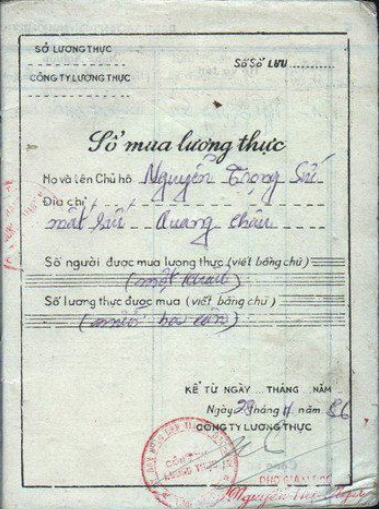 SỞ LƯƠNG THỰC
Số Sổ LƯU
CÔNG TY LƯƠNG THỰC
Sổ mua lương thực
Họ và tên Chủ hộ Nguyễn Trọng Sử
Địa chỉ
mất sức Quang Châu
Số người được mua lương thực (viết bằng chữ)
(một khẩu)
Số lương thực được mua (viết bằng chữ)
KỂ TỪ NGÀY ... THÁNG ... NĂM
Ngày 28 tháng 11 năm 86
CÔNG TY LƯƠNG THỰC
PHÓ GIÁM ĐỐC